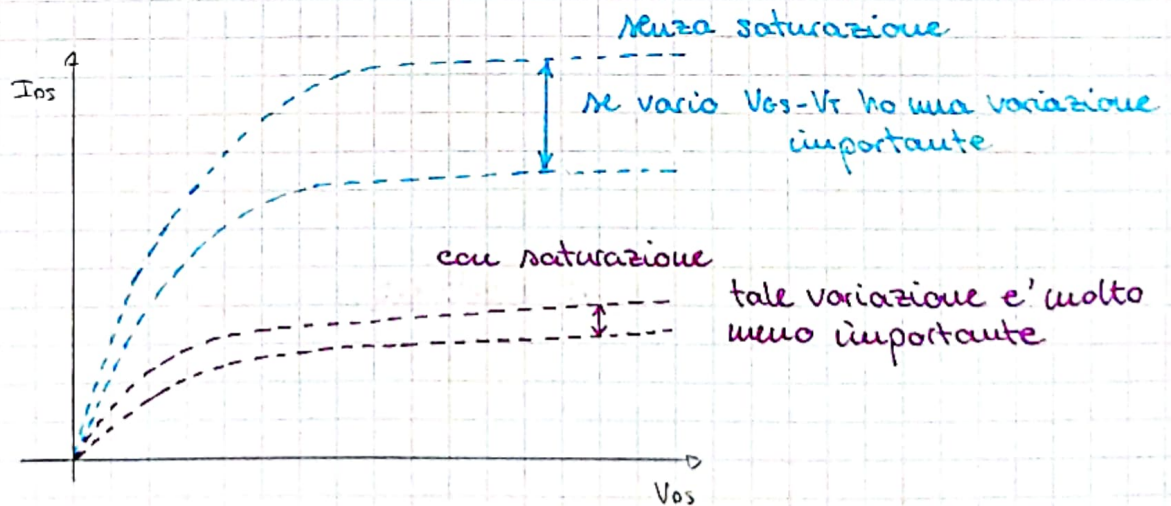 senza saturazione
IDS
se vario VGS-VT ho una variazione
importante
con saturazione
tale variazione e' molto
meno importante
VDS